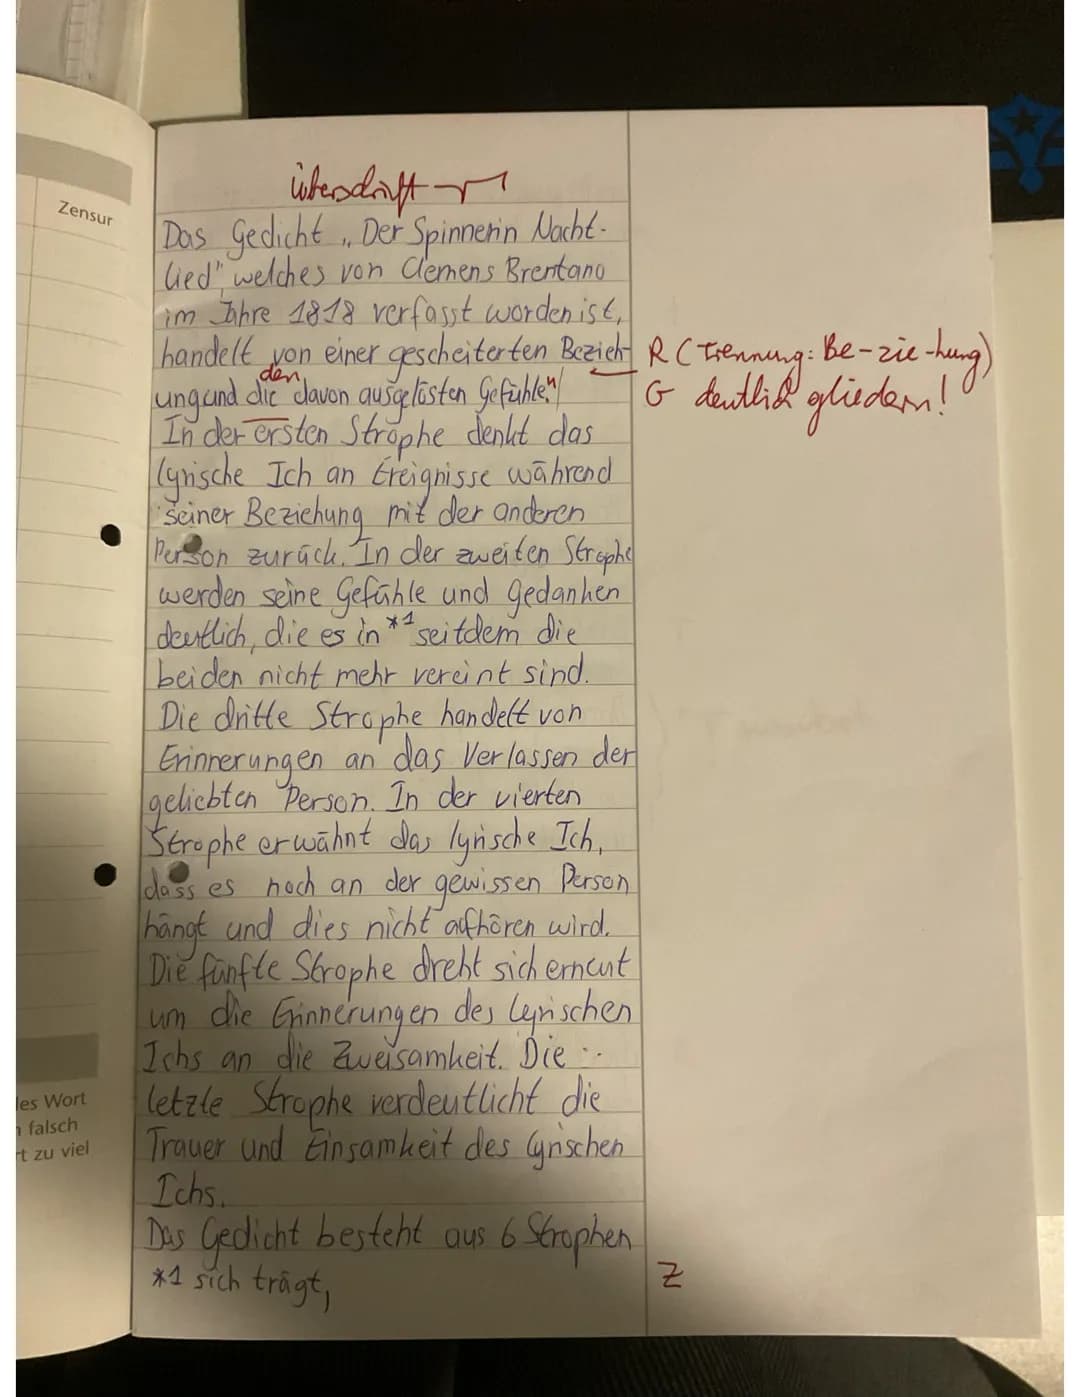 Zensur
Überschrift
Das Gedicht „Der Spinnerin Nacht-
lied", welches von Clemens Brentano
im Jahre 1818 verfasst worden ist,
handelt von einer gescheiterten Bezieh- R (Trennung: Be-zie-hung)
den
ung und die davon ausgelösten Gefühle. n G deutlich gliedern!
In der ersten Strophe denkt das
lyrische Ich an Ereignisse während
seiner Beziehung mit der anderen
Person zurück. In der zweiten Strophe
werden seine Gefühle und Gedanken
deutlich, die es in *1 seitdem die
beiden nicht mehr vereint sind.
Die dritte Strophe handelt von
Erinnerungen an das Verlassen der
geliebten Person. In der vierten
Strophe erwähnt das lyrische Ich,
dass es noch an der gewissen Person
hängt und dies nicht aufhören wird.
Die fünfte Strophe dreht sich erneut
um die Erinnerungen des lyrischen
Ichs an die Zweisamkeit. Die
letzte Strophe verdeutlicht die
Trauer und Einsamkeit des lyrischen
Ichs.
Das Gedicht besteht aus 6 Strophen
*1 sich trägt, Z
les Wort
falsch
t zu viel